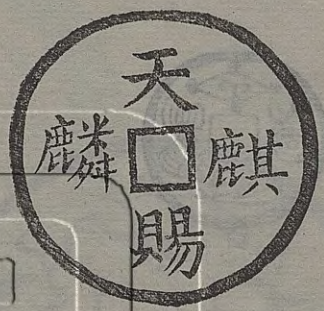 天賜麒麟